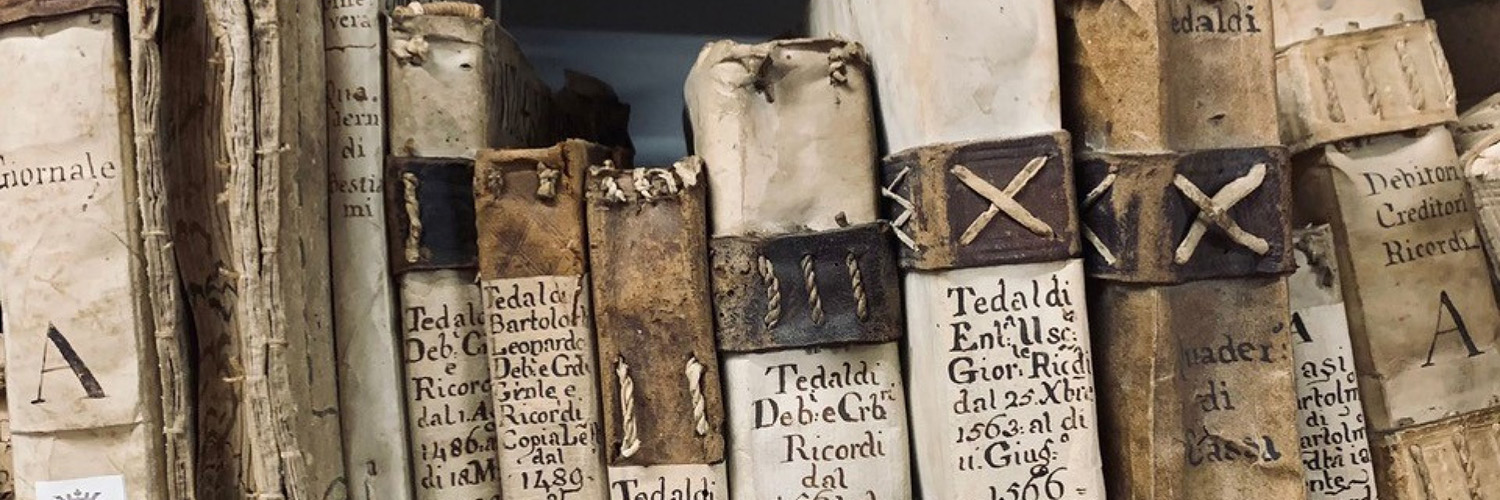 Giornale
A
vera
Qua.
dern
di
mi
Tedal
Deb: C
e
Ricord
dal 1. A
1486. a
di 18. M
Tedaldi
Bartolo
Leonardo
Deb: e Crd:
Grnle e
Ricordi
Copia Let
dal
1489.
Tedaldi
Tedaldi
Deb: e Crbri
Ricordi
dal
Tedaldi
Ent: Usc:
Gior:le Ricdi
dal 25. Xbre
1563: al di
11. Giug:o
1566
edaldi
uader:
di
Cassa
A
asi
artolm
di
artolm
Debitori
Creditori
Ricordi
A